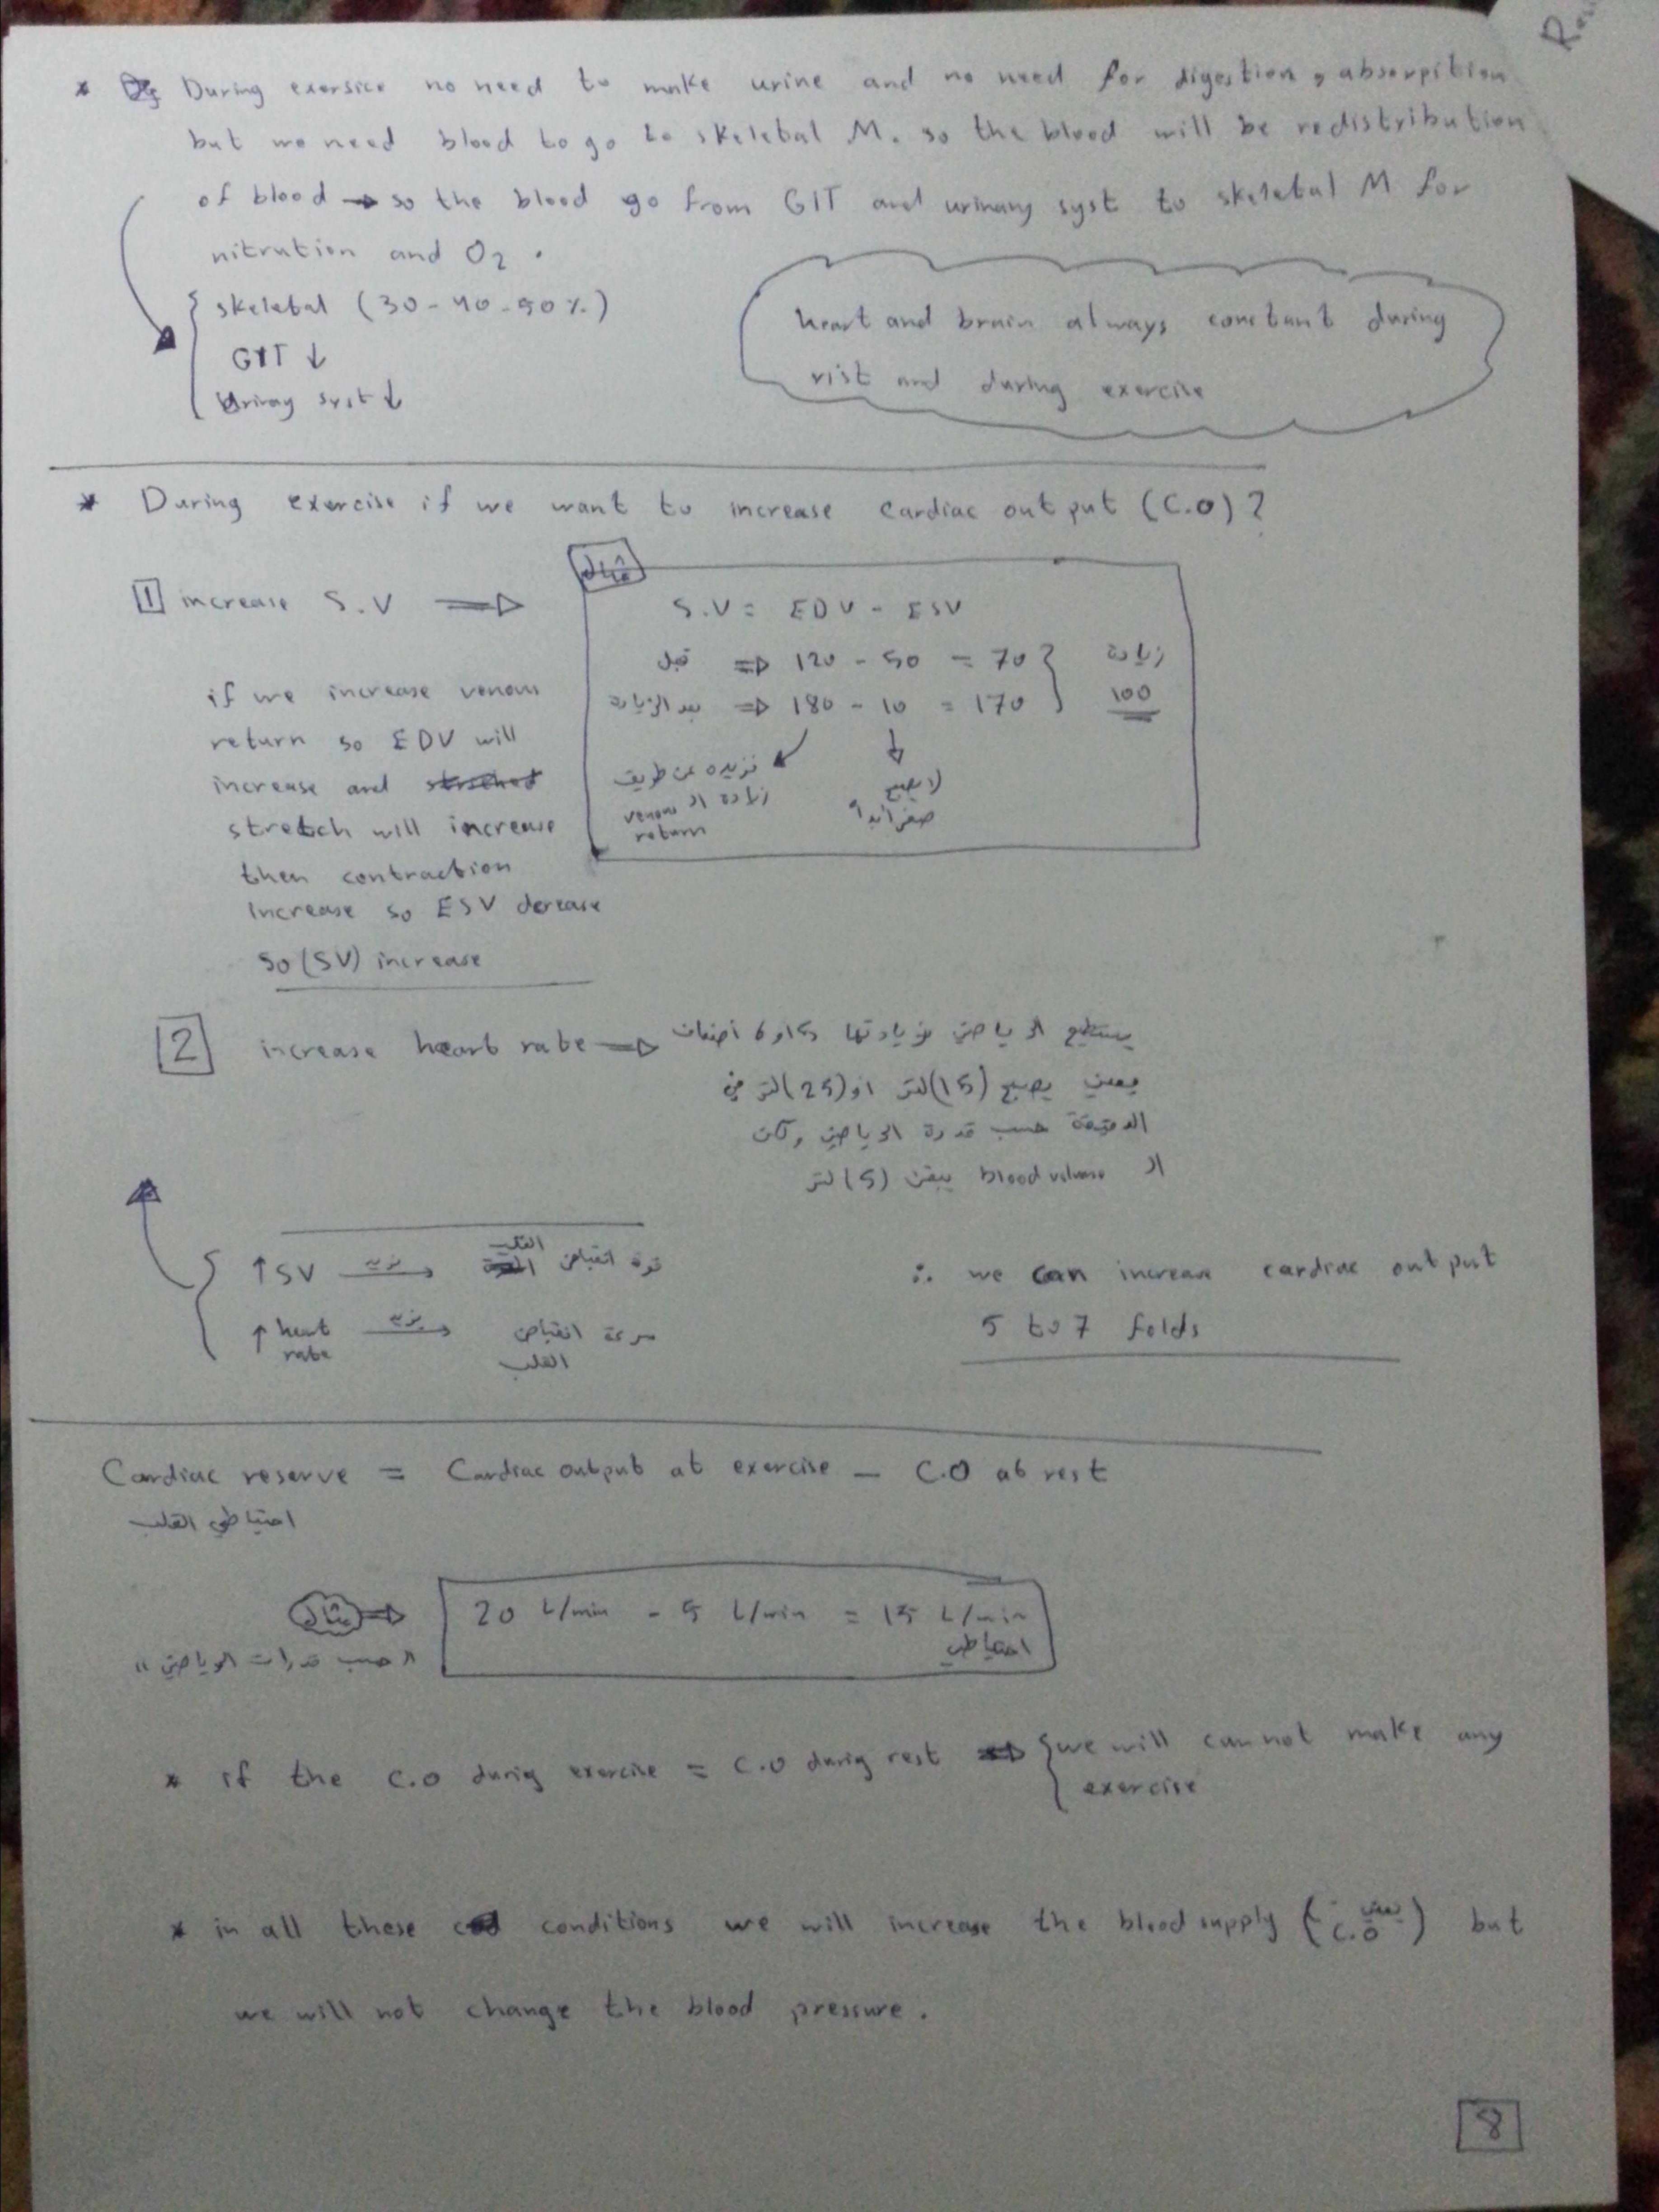 * During exersice no need to make urine and no need for digestion, absorpition
but we need blood to go to skeletal M. so the blood will be redistribution
of blood → so the blood go from GIT and urinary syst to skeletal M for
nitrution and O2.
skeletal (30-40-50%)
GIT ↓
Urinay syst ↓
heart and brain always constant during
rist and during exercise
* During exercise if we want to increase cardiac output (C.O)?
1 increase S.V ⇒
if we increase venous
return so EDV will
increase and
stretch will increase
then contraction
increase so ESV decrease
so (SV) increase
مثال
S.V = EDV - ESV
قبل ⇒ 120 - 50 = 70 } زيادة
بعد الزيادة ⇒ 180 - 10 = 170 } 100
نزيده عن طريق
زيادة الـ venous
return
لا يصبح
صفر أبداً
2 increase heart rate ⇒ يستطيع الرياضي زيادتها 5 او 6 أضعاف
يعني يصبح (15) لتر او (25) لتر في
الدقيقة حسب قدرة الرياضي ولكن
الـ blood volume يبقى (5) لتر
↑ SV → نزيد قوة انقباض القلب
↑ heart rate → نزيد سرعة انقباض
القلب
∴ we can increase cardiac output
5 to 7 folds
Cardiac reserve = Cardiac output at exercise - C.O at rest
احتياطي القلب
مثال ⇒ 20 L/min - 5 L/min = 15 L/min
احتياطي
"حسب قدرات الرياضي"
* if the C.O durig exercise = C.O durig rest ⇒ { we will can not make any
exercise
* in all these conditions we will increase the blood supply (يعني C.O) but
we will not change the blood pressure.
8